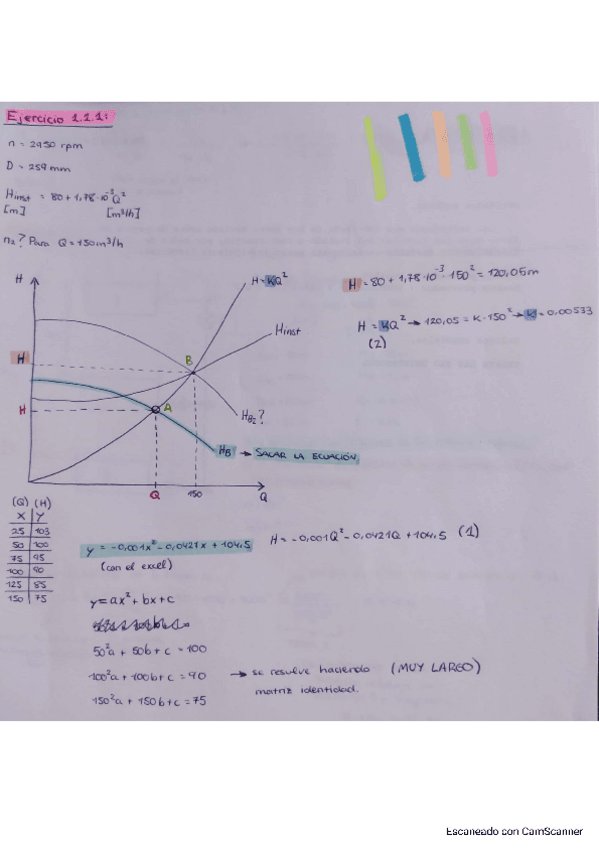 Ejercicio 1.2.1:
n = 2950 rpm
D = 259 mm
Hinst = 80 + 1,78·10⁻³Q²
[m] [m³/h]
n₂? Para Q = 150 m³/h
H
H = KQ²
Hinst
B
H
H
A
HB₂?
HB → SACAR LA ECUACIÓN
Q
150
Q
H = 80 + 1,78·10⁻³·150² = 120,05m
H = KQ² → 120,05 = K·150² → K = 0,00533
(2)
(Q) (H)
X Y
25 103
50 100
75 95
100 90
125 85
150 75
y = -0,001x² - 0,0421x + 104,5
(con el excel)
H = -0,001Q² - 0,0421Q + 104,5 (1)
y = ax² + bx + c
50²a + 50b + c = 100
100²a + 100b + c = 90
150²a + 150b + c = 75
→ se resuelve haciendo (MUY LARGO)
matriz identidad.
Escaneado con CamScanner